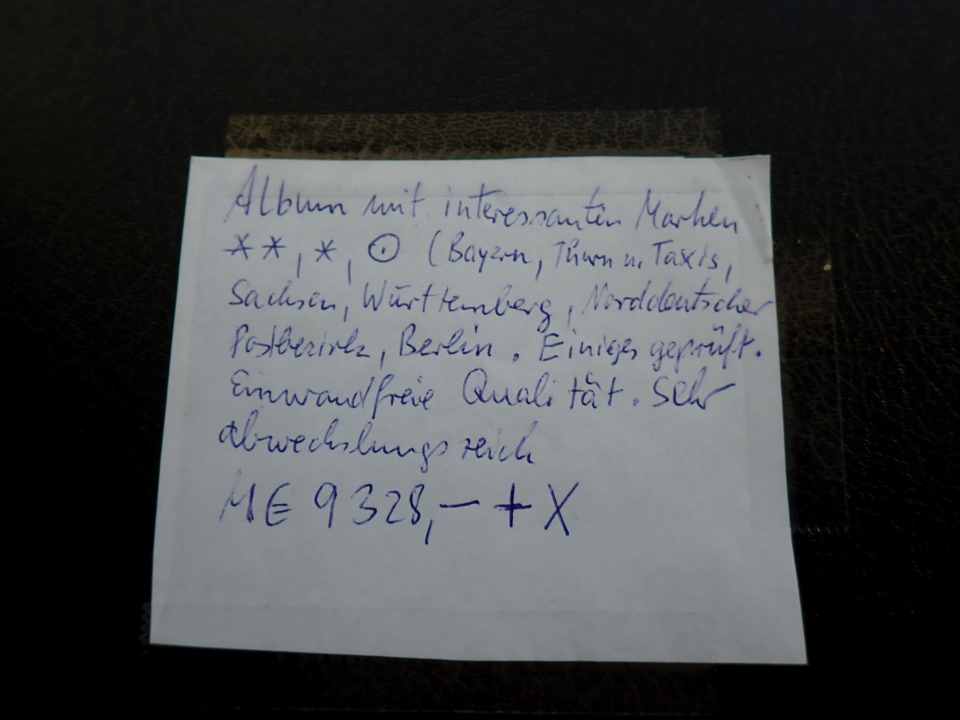 Album mit interessanten Marken
**, *, ⊙ (Bayern, Thurn u. Taxis,
Sachsen, Württemberg, Norddeutscher
Postbezirk, Berlin. Einiges geprüft.
Einwandfreie Qualität. Sehr
abwechslungsreich
M€ 9328,- + X